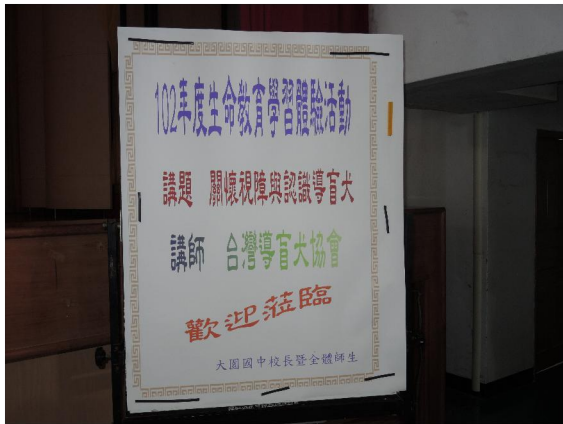 102年度生命教育學習體驗活動
講題 關懷視障與認識導盲犬
講師 台灣導盲犬協會
歡迎蒞臨
大園國中校長暨全體師生